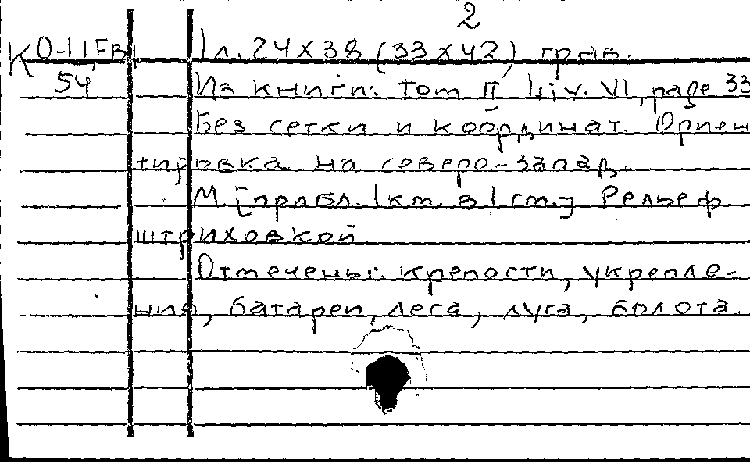 2
К О-11,ЕВ 1 л. 24 х 38 (33 х 42) грав.
54 Из книги: Том II liv. VI, page 33
Без сетки и координат. Ориен
тировка на северо-запад.
М. [прибл. 1 км. в 1 см.] Рельеф
штриховкой
Отмечены: крепости, укрепле-
ния, батареи, леса, луга, болота.